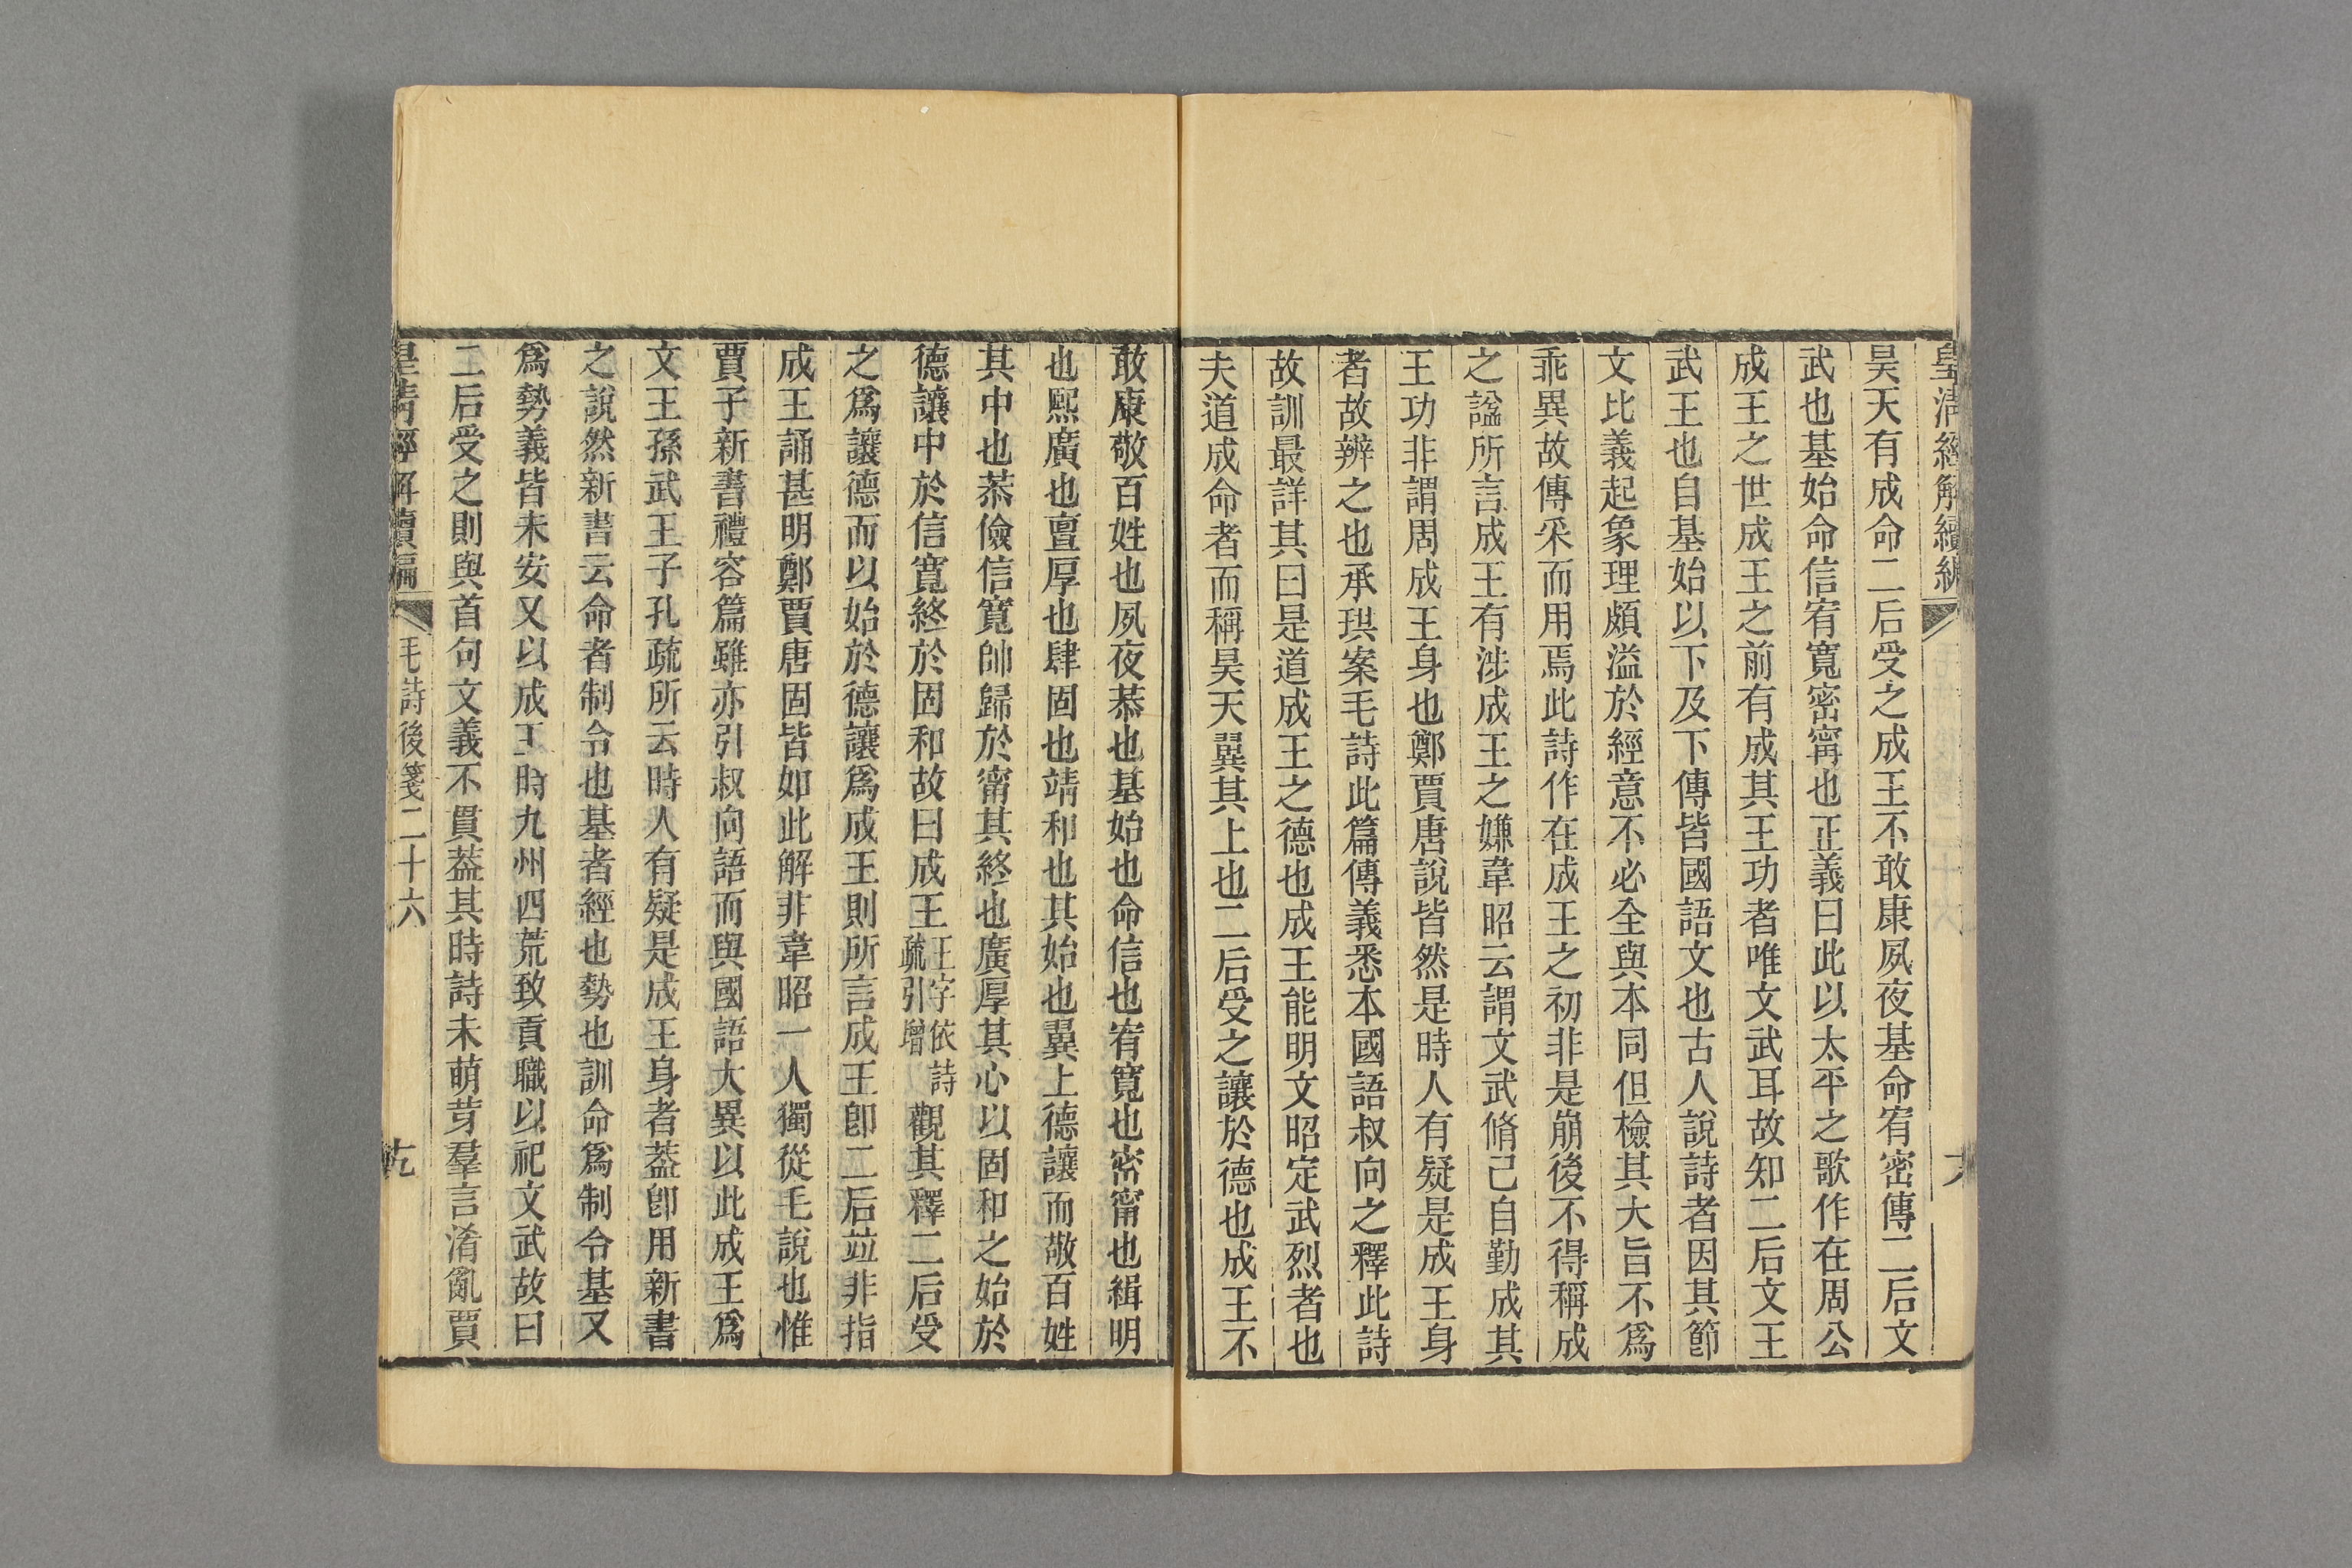 皇清經解續編
昊天有成命二后受之成王不敢康夙夜基命宥密傳二后文
武也基始命信宥寬密甯也正義曰此以太平之歌作在周公
成王之世成王之前有成其王功者唯文武耳故知二后文王
武王也自基始以下及下傳皆國語文也古人說詩者因其節
文比義起象理頗溢於經意不必全與本同但檢其大旨不爲
乖異故傳采而用焉此詩作在成王之初非是崩後不得稱成
之諡所言成王有涉成王之嫌韋昭云謂文武脩己自勤成其
王功非謂周成王身也鄭賈唐說皆然是時人有疑是成王身
者故辨之也承珙案毛詩此篇傳義悉本國語叔向之釋此詩
故訓最詳其曰是道成王之德也成王能明文昭定武烈者也
夫道成命者而稱昊天翼其上也二后受之讓於德也成王不
敢康敬百姓也夙夜恭也基始也命信也宥寬也密甯也緝明
也熙廣也亶厚也肆固也靖和也其始也翼上德讓而敬百姓
其中也恭儉信寬帥歸於甯其終也廣厚其心以固和之始於
德讓中於信寬終於固和故曰成王王字依詩疏引增觀其釋二后受
之爲讓德而以始於德讓爲成王則所言成王卽二后竝非指
成王誦甚明鄭賈唐固皆如此解非韋昭一人獨從毛說也惟
賈子新書禮容篇雖亦引叔向語而與國語大異以此成王爲
文王孫武王子孔疏所云時人有疑是成王身者葢卽用新書
之說然新書云命者制令也基者經也勢也訓命爲制令基又
爲勢義皆未安又以成王時九州四荒致貢職以祀文武故曰
二后受之則與首句文義不貫葢其時詩未萌芽羣言淆亂賈
皇清經解續編 毛詩後箋二十六